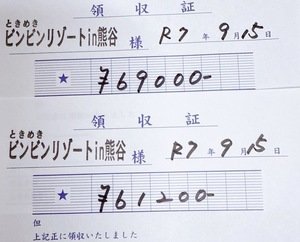 領収証
ときめき
ピンピンリゾートin熊谷 様 R7年9月15日
★ ¥69000-
領収証
ときめき
ピンピンリゾートin熊谷 様 R7年9月15日
★ ¥61200-
但
上記正に領収いたしました